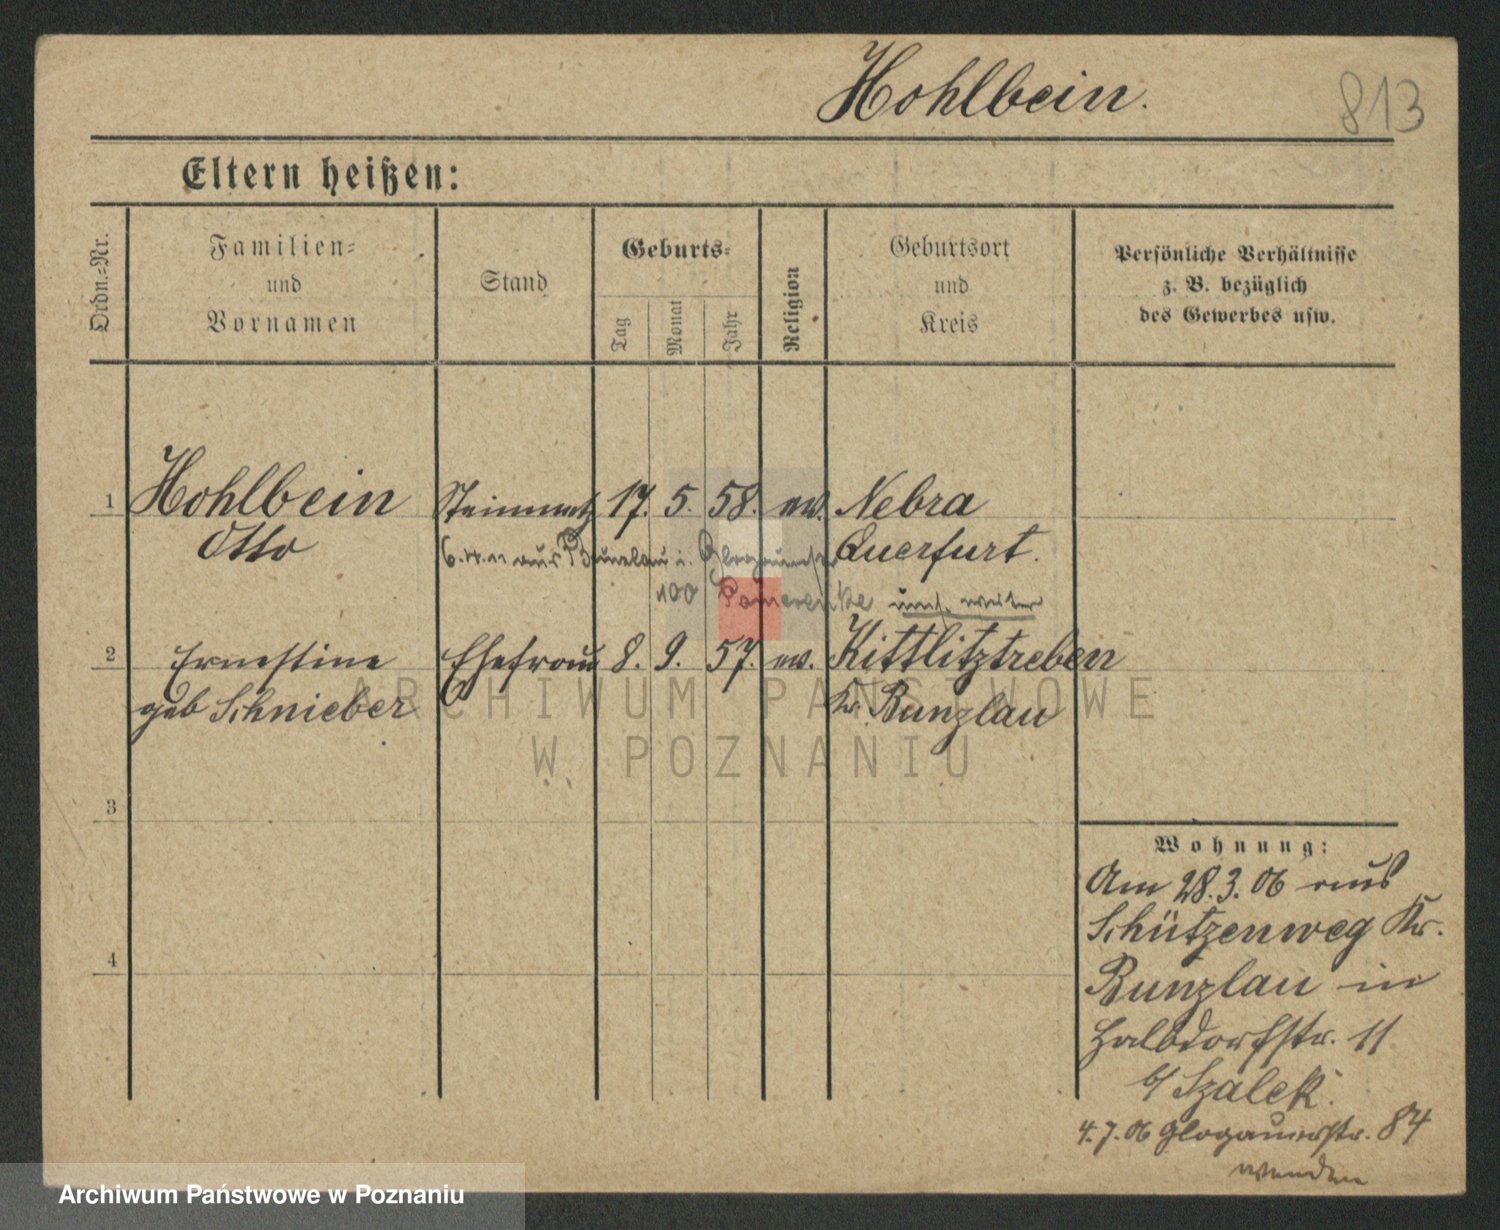 Hohlbein.
813
Eltern heißen:
Ordn.-Nr.
Familien-
und
Vornamen
Stand
Geburts-
Tag
Monat
Jahr
Religion
Geburtsort
und
Kreis
Persönliche Verhältnisse
z. B. bezüglich
des Gewerbes usw.
1 Hohlbein Steinmetz 17. 5. 58. ev. Nebra
Otto Querfurt.
6. 4. 11 aus Bunzlau i. Glogauerstr
100 Pomerenke umst. weiter
2 Ernestine Ehefrau 8. 9. 57. ev. Kittlitztreben
geb Schnieber Kr. Bunzlau
3
4
Wohnung:
Am 28.3.06 aus
Schützenweg Kr.
Bunzlau in
Halbdorfstr. 11
b/ Szalek.
4.7.06 Glogauerstr. 84
wenden
ARCHIWUM PAŃSTWOWE
W POZNANIU
Archiwum Państwowe w Poznaniu